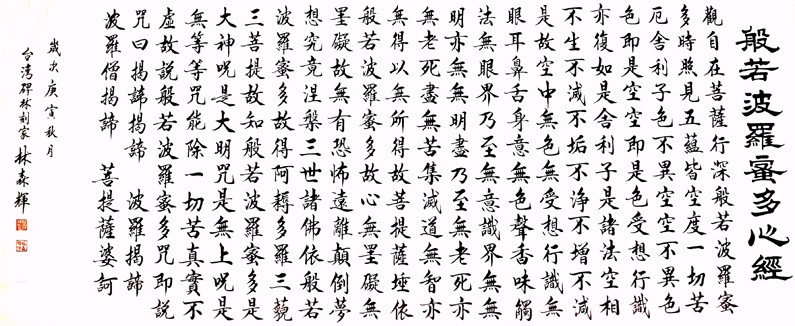 般若波羅蜜多心經
觀自在菩薩行深般若波羅蜜
多時照見五蘊皆空度一切苦
厄舍利子色不異空空不異色
色即是空空即是色受想行識
亦復如是舍利子是諸法空相
不生不滅不垢不淨不增不減
是故空中無色無受想行識無
眼耳鼻舌身意無色聲香味觸
法無眼界乃至無意識界無無
明亦無無明盡乃至無老死亦
無老死盡無苦集滅道無智亦
無得以無所得故菩提薩埵依
般若波羅蜜多故心無罣礙無
罣礙故無有恐怖遠離顛倒夢
想究竟涅槃三世諸佛依般若
波羅蜜多故得阿耨多羅三藐
三菩提故知般若波羅蜜多是
大神咒是大明咒是無上咒是
無等等咒能除一切苦真實不
虛故說般若波羅蜜多咒即說
咒曰揭諦揭諦 波羅揭諦
波羅僧揭諦 菩提薩婆訶
歲次庚寅秋月
台湾碑林刻家 林森輝